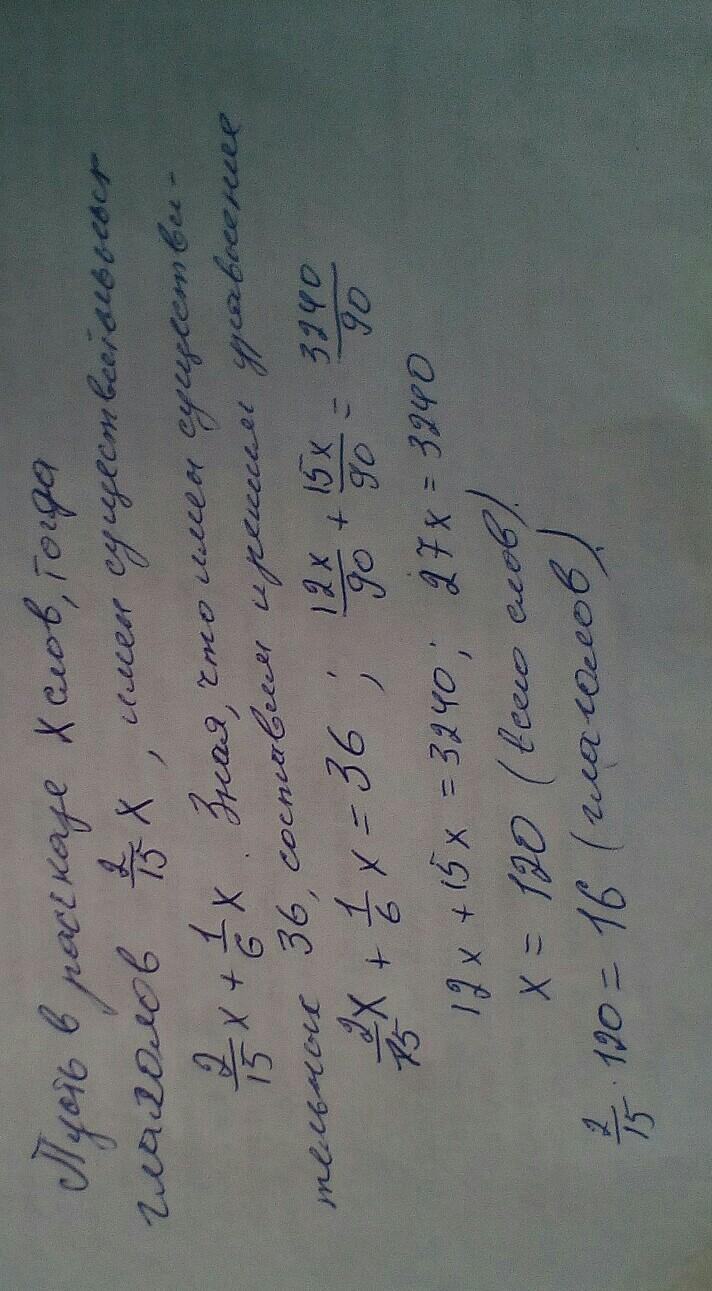 Пусть в рассказе x слов, тогда
глаголов 2/15 x, имен существительных
2/15 x + 1/6 x. Зная, что имен существи-
тельных 36, составим и решим уравнение
2/15 x + 1/6 x = 36 ; 12x/90 + 15x/90 = 3240/90
12x + 15x = 3240; 27x = 3240
x = 120 (всего слов).
2/15 · 120 = 16 (глаголов).